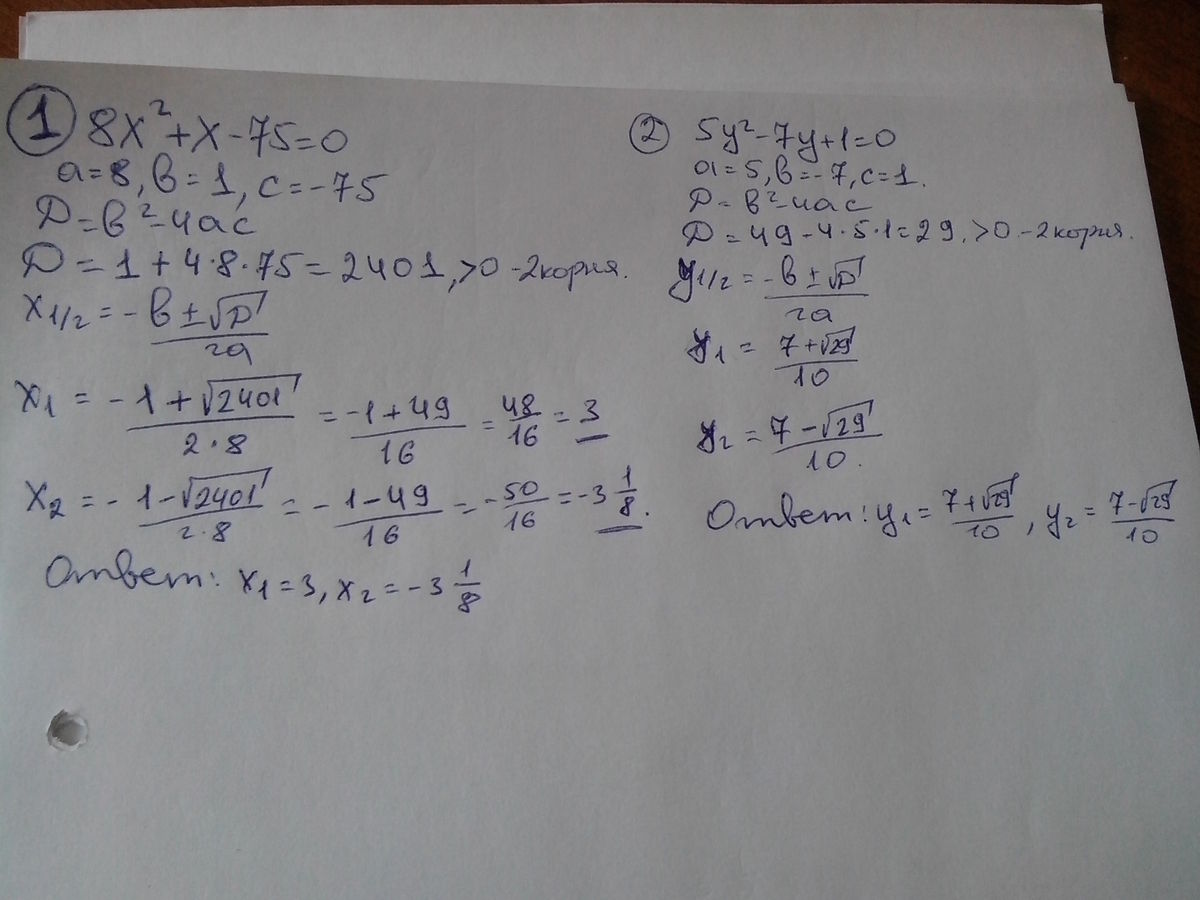 1 8x²+x-75=0
a=8, в=1, c=-75
D=в²-4ac
D=1+4·8·75=2401,>0 -2корня.
x1/2 = -в±√D / 2a
x1 = -1+√2401 / 2·8 = -1+49 / 16 = 48/16 = 3
x2 = -1-√2401 / 2·8 = -1-49 / 16 = -50/16 = -3 1/8.
Ответ: x1=3, x2=-3 1/8
2 5y²-7y+1=0
a=5, в=-7, c=1.
D=в²-4ac
D=49-4·5·1=29,>0 -2корня.
y1/2 = -в±√D / 2a
y1 = 7+√29 / 10
y2 = 7-√29 / 10.
Ответ: y1= 7+√29 / 10, y2= 7-√29 / 10